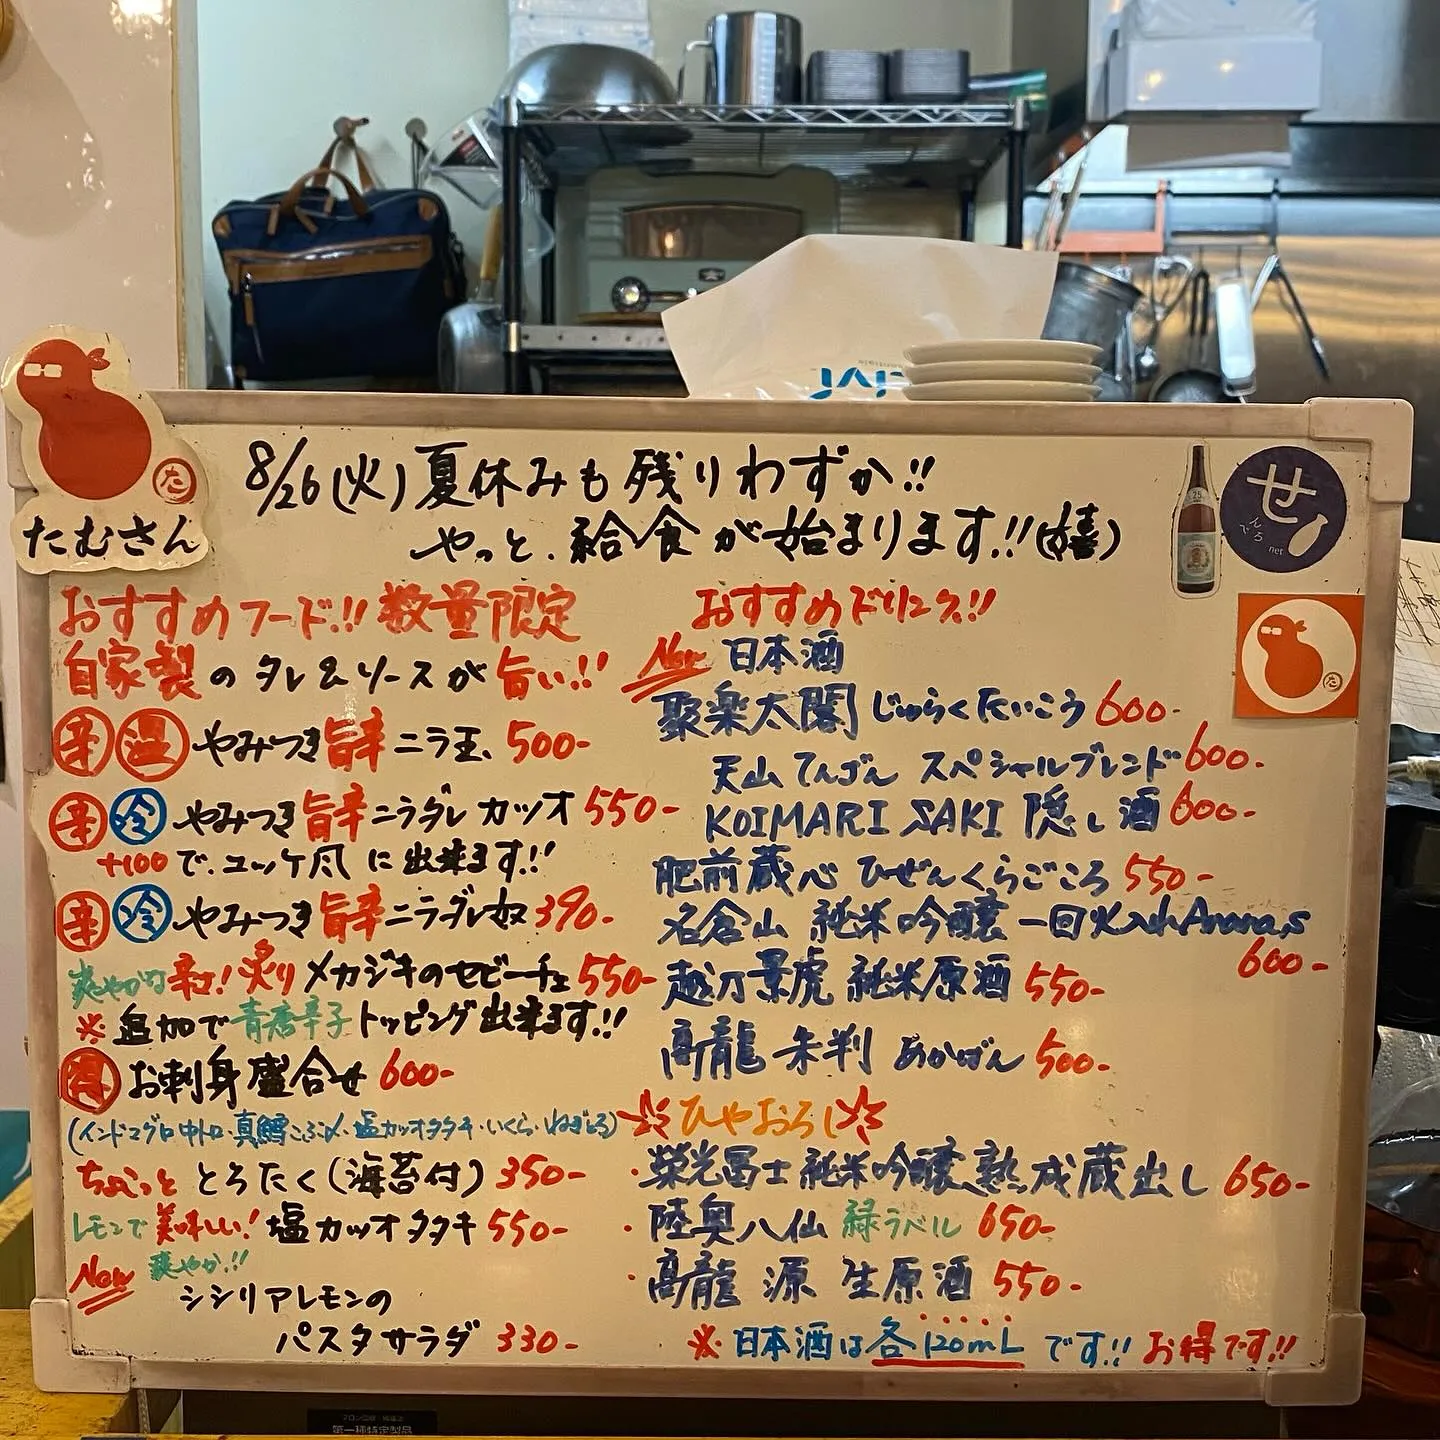 8/26(火)夏休みも残りわずか!!
やっと、給食が始まります!!(嬉)
たむさん
た
せ
んべろ
net
25
おすすめフード!! 数量限定
自家製のタレ&ソースが旨い!!
辛 温 やみつき旨辛ニラ玉、500-
辛 冷 やみつき旨辛ニラダレカツオ 550-
+100で、ユッケ風に出来ます!!
辛 冷 やみつき旨辛ニラダレ奴 390-
爽やかな辛さ!炙りメカジキのセビーチェ 550-
※追加で青唐辛子トッピング出来ます!!
得 お刺身盛合せ 600-
(インドマグロ中トロ・真鯛こぶ〆・塩カツオタタキ・いくら・ねぎとろ)
ちょこっと とろたく(海苔付) 350-
レモンで美味しい!塩カツオタタキ 550-
New 爽やか!!
シシリアレモンの
パスタサラダ 330-
おすすめドリンク!!
New 日本酒
聚楽太閤 じゅらくたいこう 600-
天山 てんざん スペシャルブレンド 600-
KOIMARI SAKI 隠し酒 600-
肥前蔵心 ひぜんくらごころ 550-
名倉山 純米吟醸 一回火入れ
600-
越乃景虎 純米原酒 550-
高龍 朱判 あかばん 500-
ひやおろし
・栄光冨士 純米吟醸 熟成蔵出し 650-
・陸奥八仙 緑ラベル 650-
・高龍 源 生原酒 550-
※日本酒は各120mLです!! お得です!!
第一種特定製品